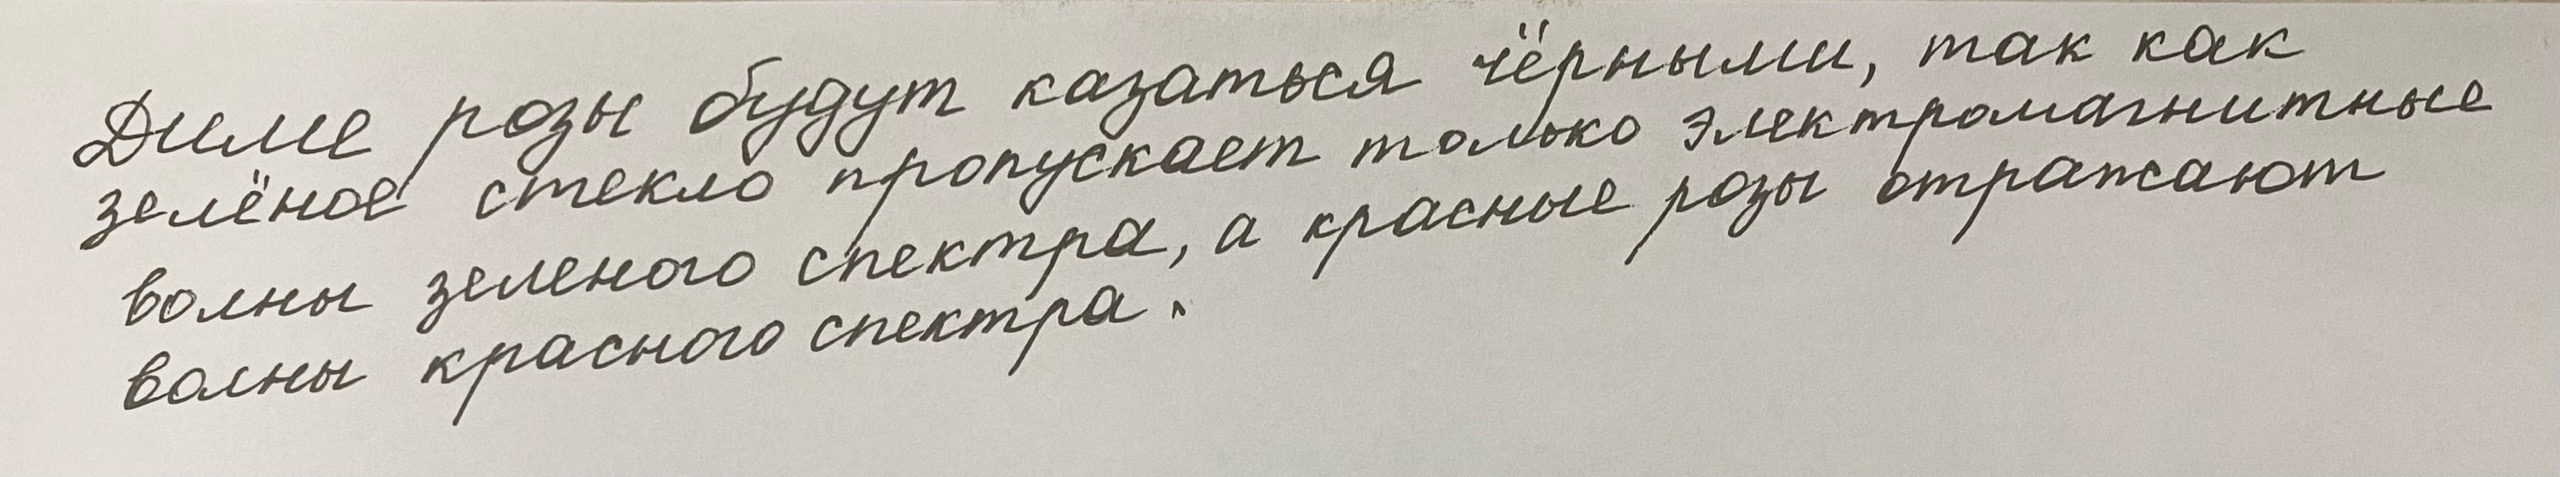 Диме розы будут казаться чёрными, так как
зелёное стекло пропускает только электромагнитные
волны зеленого спектра, а красные розы отражают
волны красного спектра.